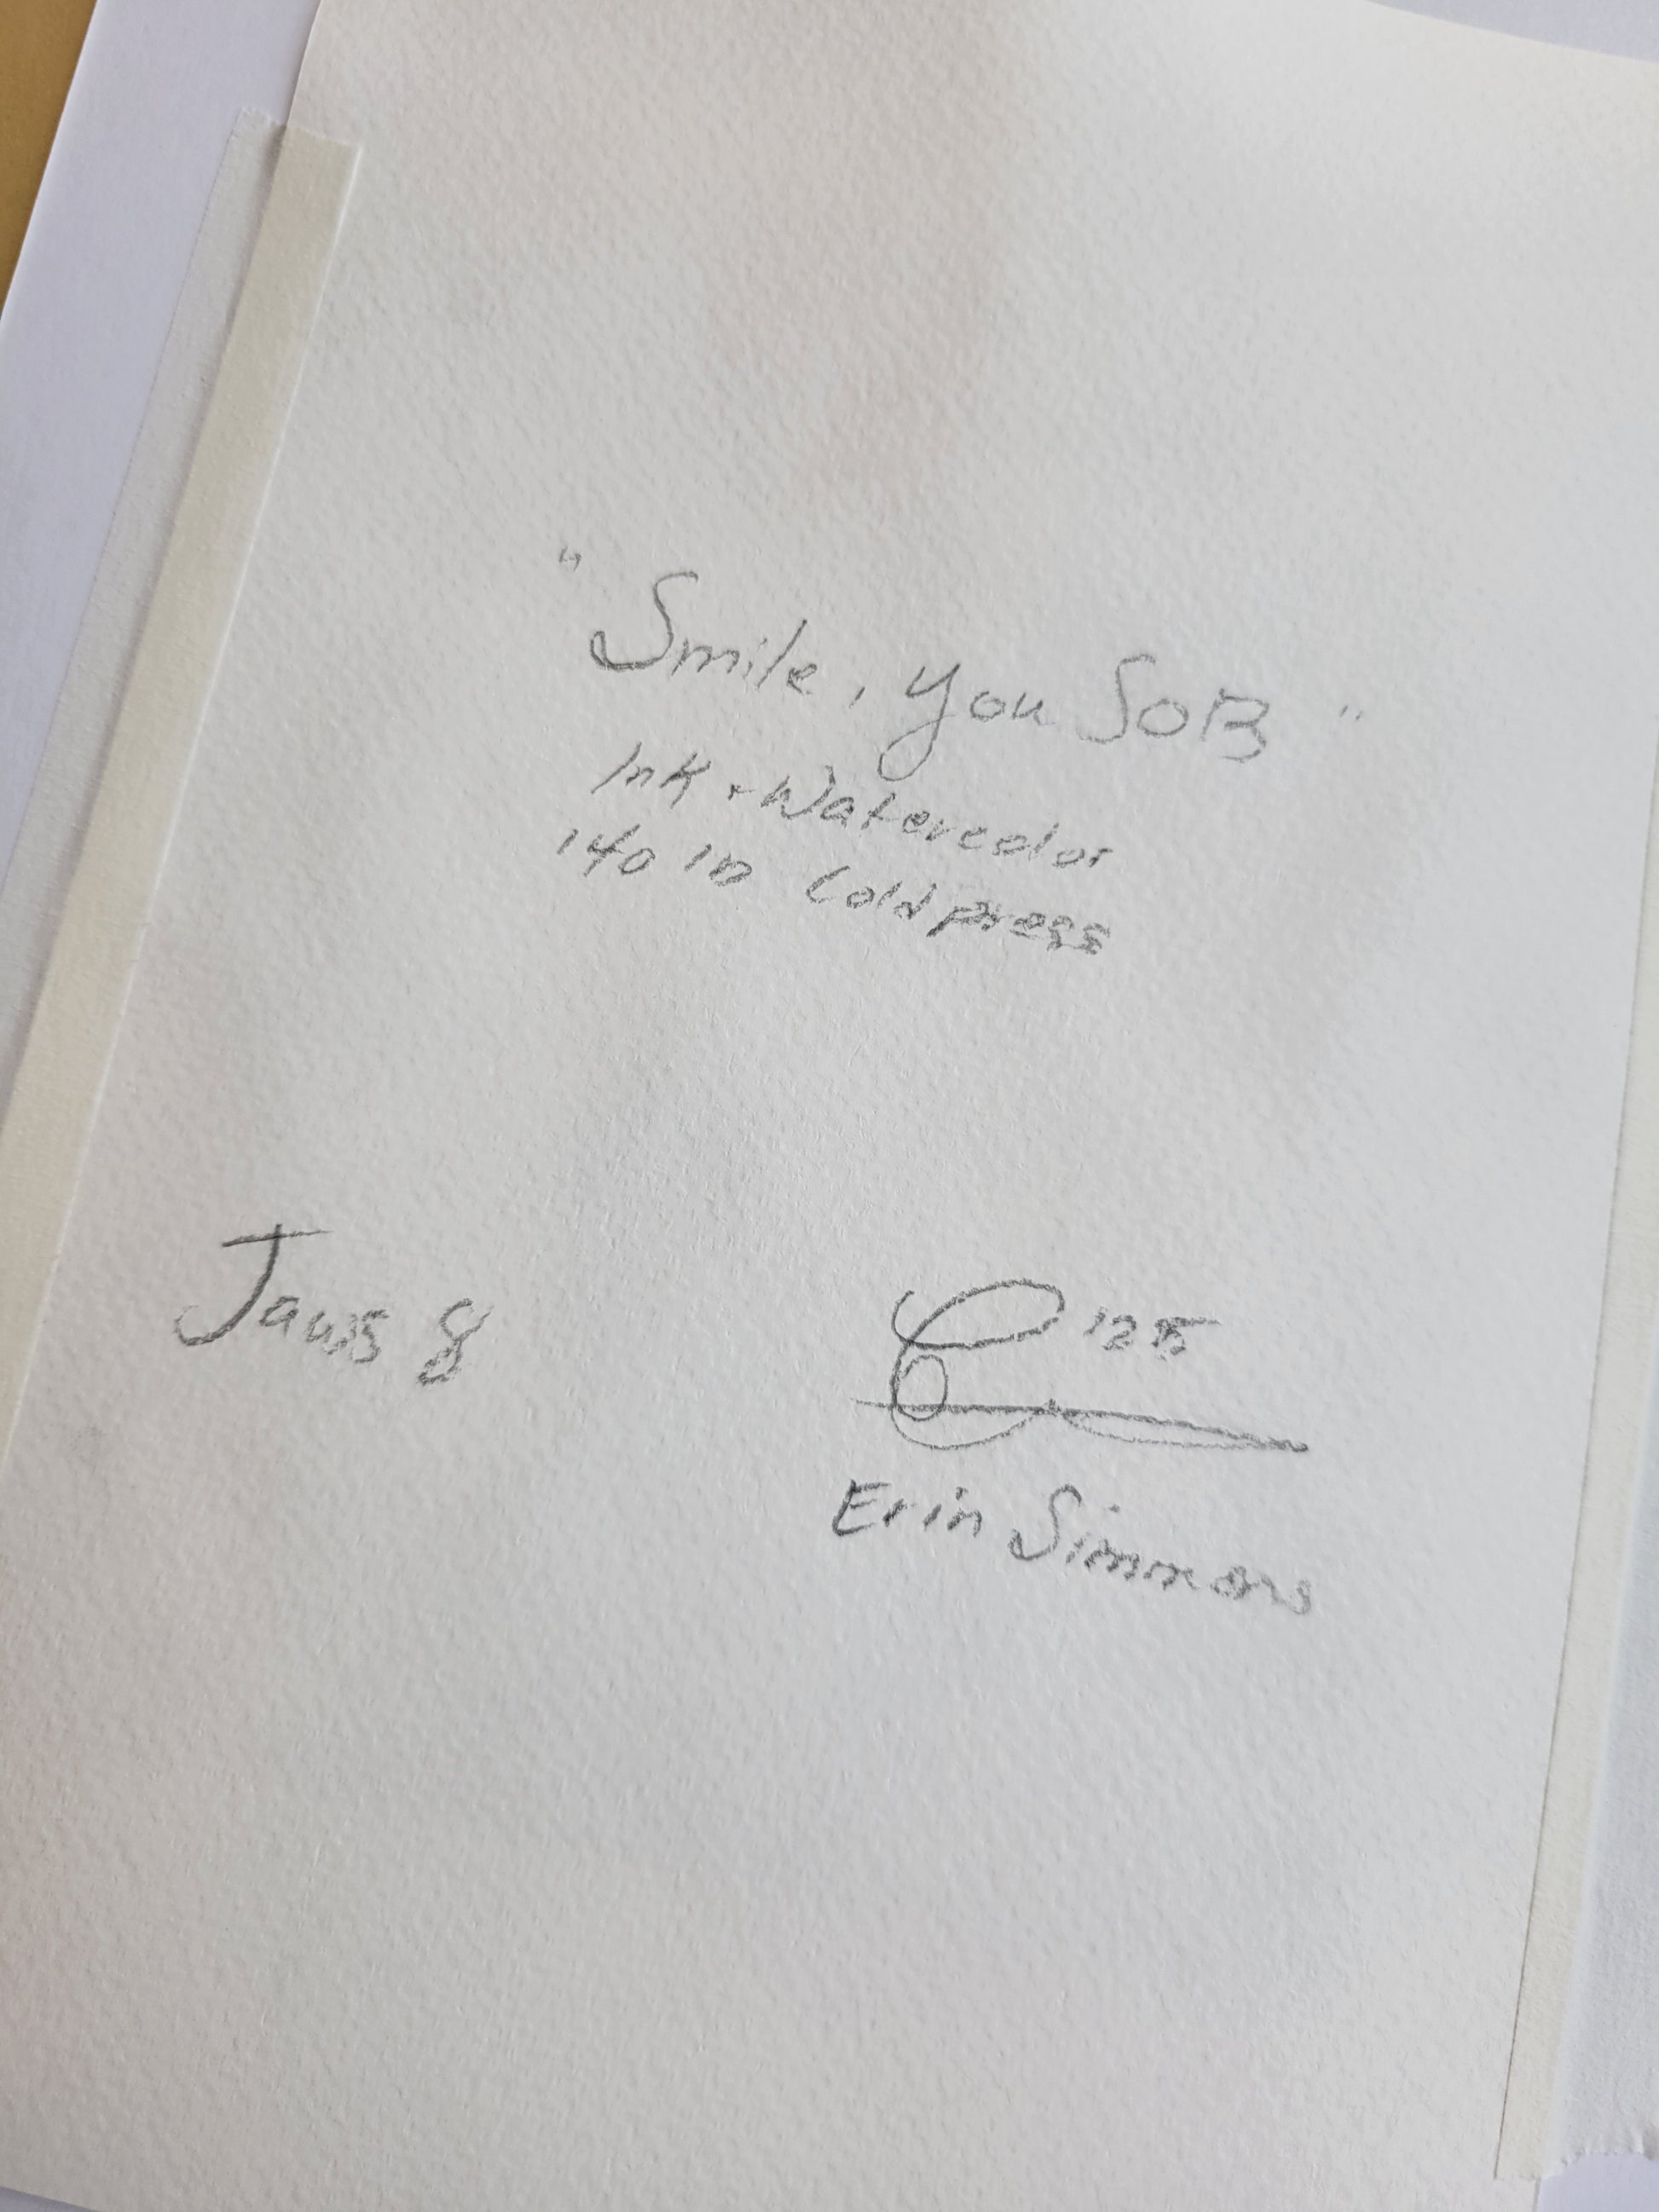 "Smile, you SOB"
Ink + Watercolor
140 lb Coldpress
Jaws 8
'25
Erin Simmons